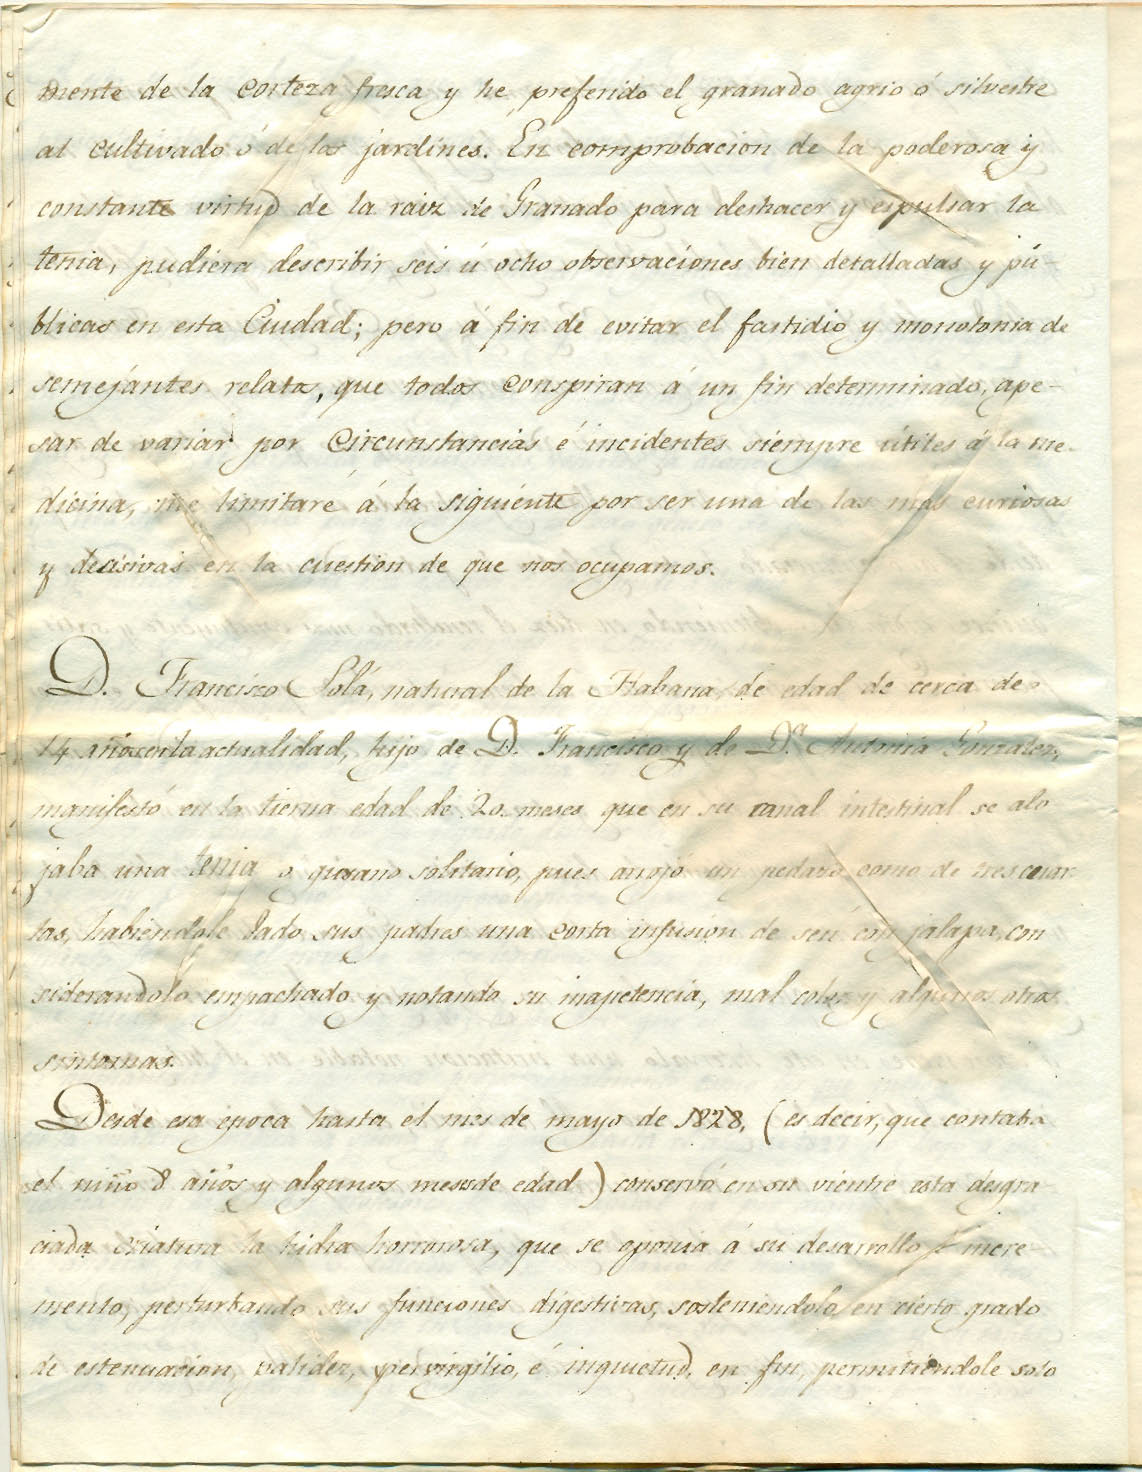 mente de la corteza fresca y he preferido el granado agrio ó silvestre
al cultivado ó de los jardines. En comprobacion de la poderosa y
constante virtud de la raiz de Granado para deshacer y espulsar la
tenia, pudiera describir seis ú ocho observaciones bien detalladas y pú-
blicas en esta Ciudad; pero á fin de evitar el fastidio y monotonia de
semejantes relatos, que todos conspiran á un fin determinado, ape-
sar de variar por circunstancias é incidentes siempre útiles á la me-
dicina, me limitaré á la siguiente por ser una de las mas curiosas
y decisivas en la cuestion de que nos ocupamos.
D. Francisco Solá, natural de la Habana, de edad de cerca de
14 años en la actualidad, hijo de D. Francisco y de D.ª Antonia Gonzalez,
manifestó en la tierna edad de 20 meses que en su canal intestinal se alo
jaba una tenia o gusano solitario, pues arrojó un pedazo como de tres cuar
tas, habiendole dado sus padres una corta infusion de sen con jalapa, con
siderandolo empachado y notando su inapetencia, mal color y algunos otros
sintomas.
Desde esa epoca hasta el mes de mayo de 1828, (es decir, que contaba
el niño 8 años y algunos meses de edad) conservó en su vientre esta desgra-
ciada criatura la hidra horrorosa, que se oponia á su desarrollo é incre-
mento, perturbando sus funciones digestivas, sosteniendolo en cierto grado
de estenuacion, palidez, pervirgilio, é inquietud, en fin, permitiendole solo